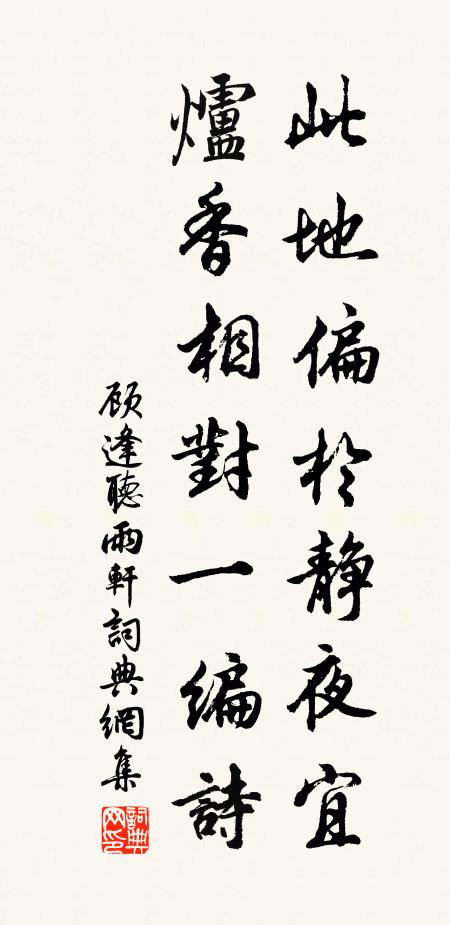 此地偏於静夜宜
爐香相對一编詩
顾逢聽雨軒詞典網集
詞典网印